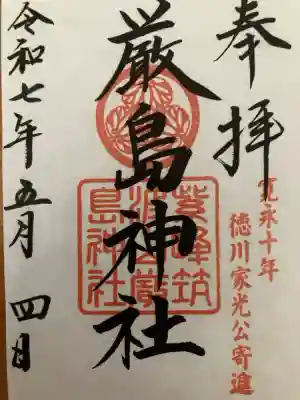 奉拝
寛永十年
徳川家光公寄進
厳島神社
紫峰筑
波山嚴
島神社
令和七年五月四日